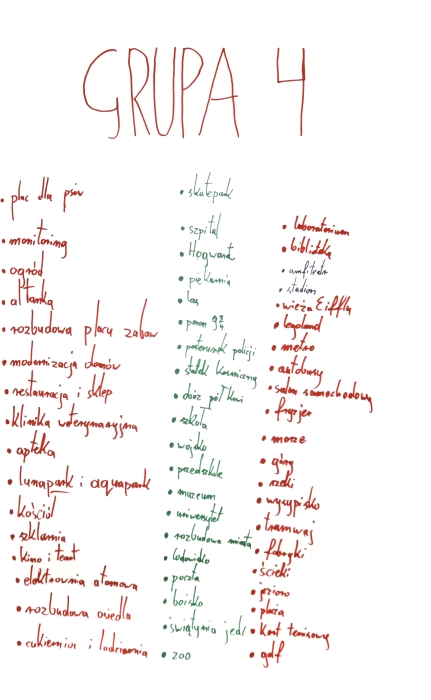 GRUPA 4
• plac dla psów
• monitoring
• ogród
• altanka
• rozbudowa placu zabaw
• modernizacja domów
• restauracja i sklep
• klinika weterynaryjna
• apteka
• lunapark i aquapark
• kościół
• szklarnia
• kino i teatr
• elektrownia atomowa
• rozbudowa osiedla
• cukiernia i lodziarnia
• skatepark
• szpital
• Hogwart
• piekarnia
• las
• peron 9 3/4
• posterunek policji
• statek kosmiczny
• dwór pół krwi
• szkoła
• wojsko
• przedszkole
• muzeum
• uniwersytet
• rozbudowa miasta
• lodowisko
• poczta
• boisko
• świątynia jedi
• zoo
• laboratorium
• biblioteka
• amfiteatr
• stadion
• wieża Eiffla
• legoland
• metro
• autobusy
• salon samochodowy
• fryzjer
• morze
• góry
• rzeki
• wysypisko
• tramwaj
• fabryki
• ścieki
• jezioro
• plaża
• kort tenisowy